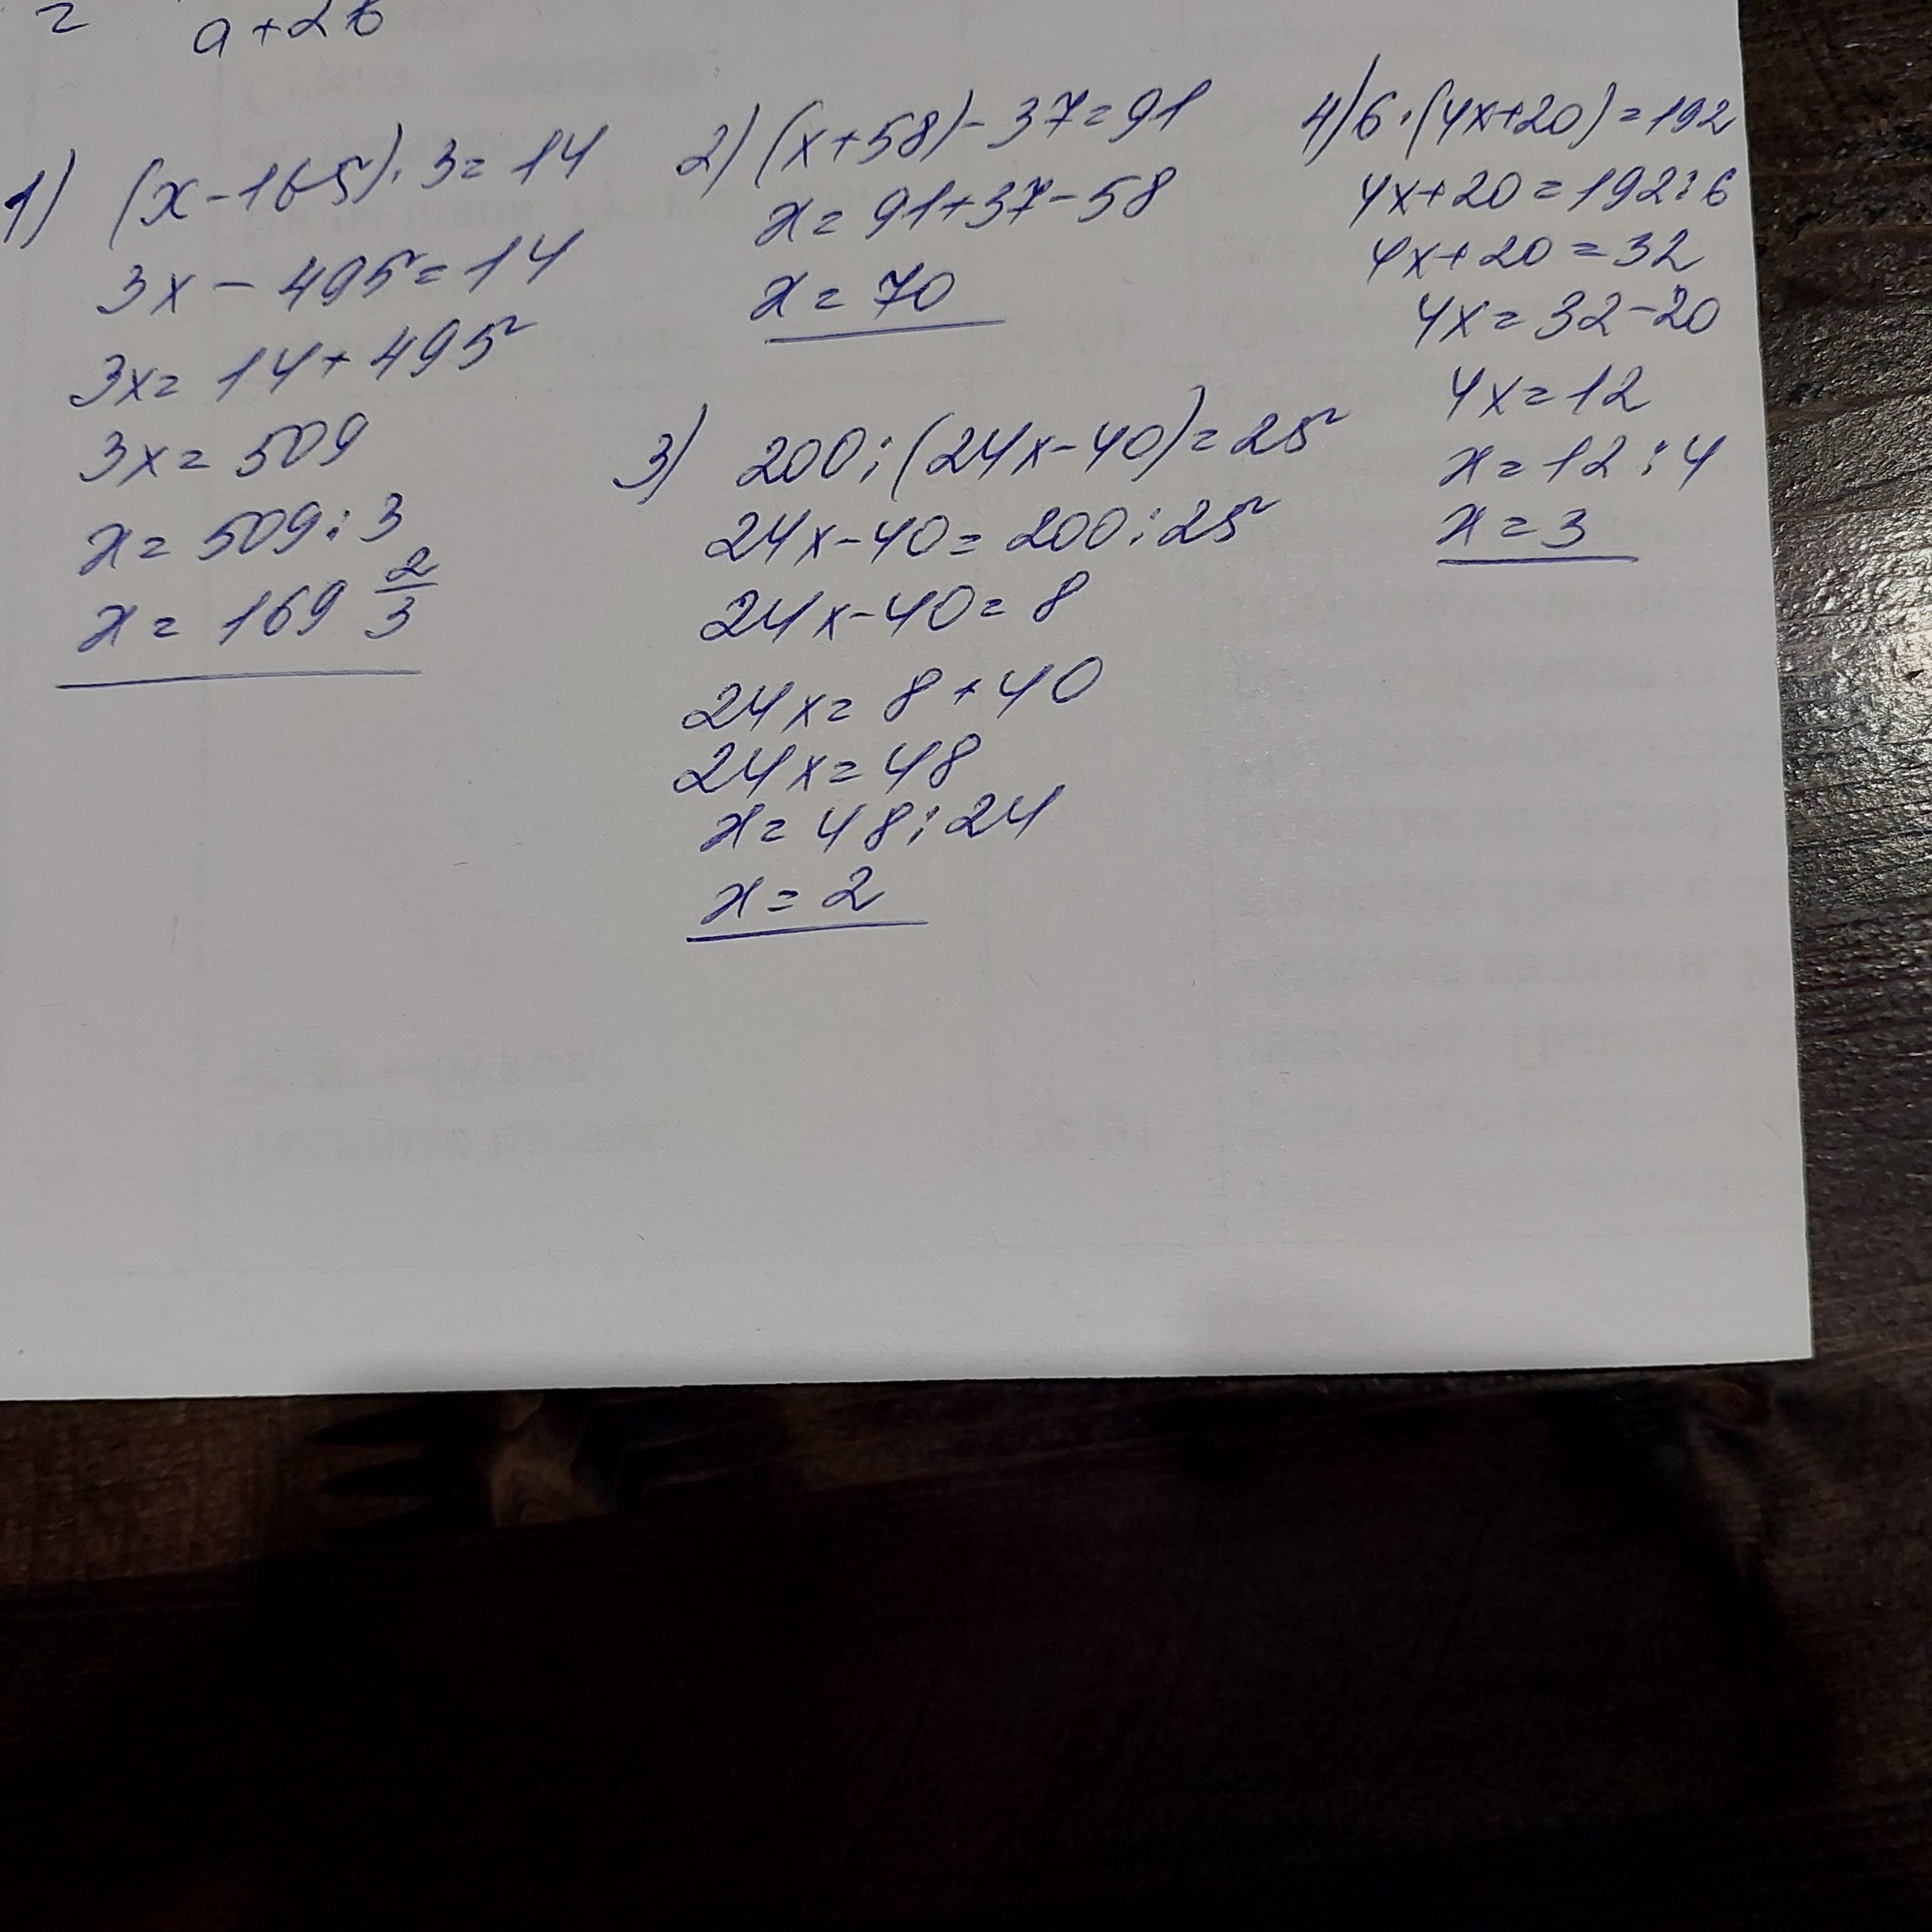 = a+2b
1) (x-165)·3=14
3x-495=14
3x=14+495
3x=509
x=509:3
x=169 2/3
2) (x+58)-37=91
x=91+37-58
x=70
3) 200:(24x-40)=25
24x-40=200:25
24x-40=8
24x=8+40
24x=48
x=48:24
x=2
4) 6·(4x+20)=192
4x+20=192:6
4x+20=32
4x=32-20
4x=12
x=12:4
x=3